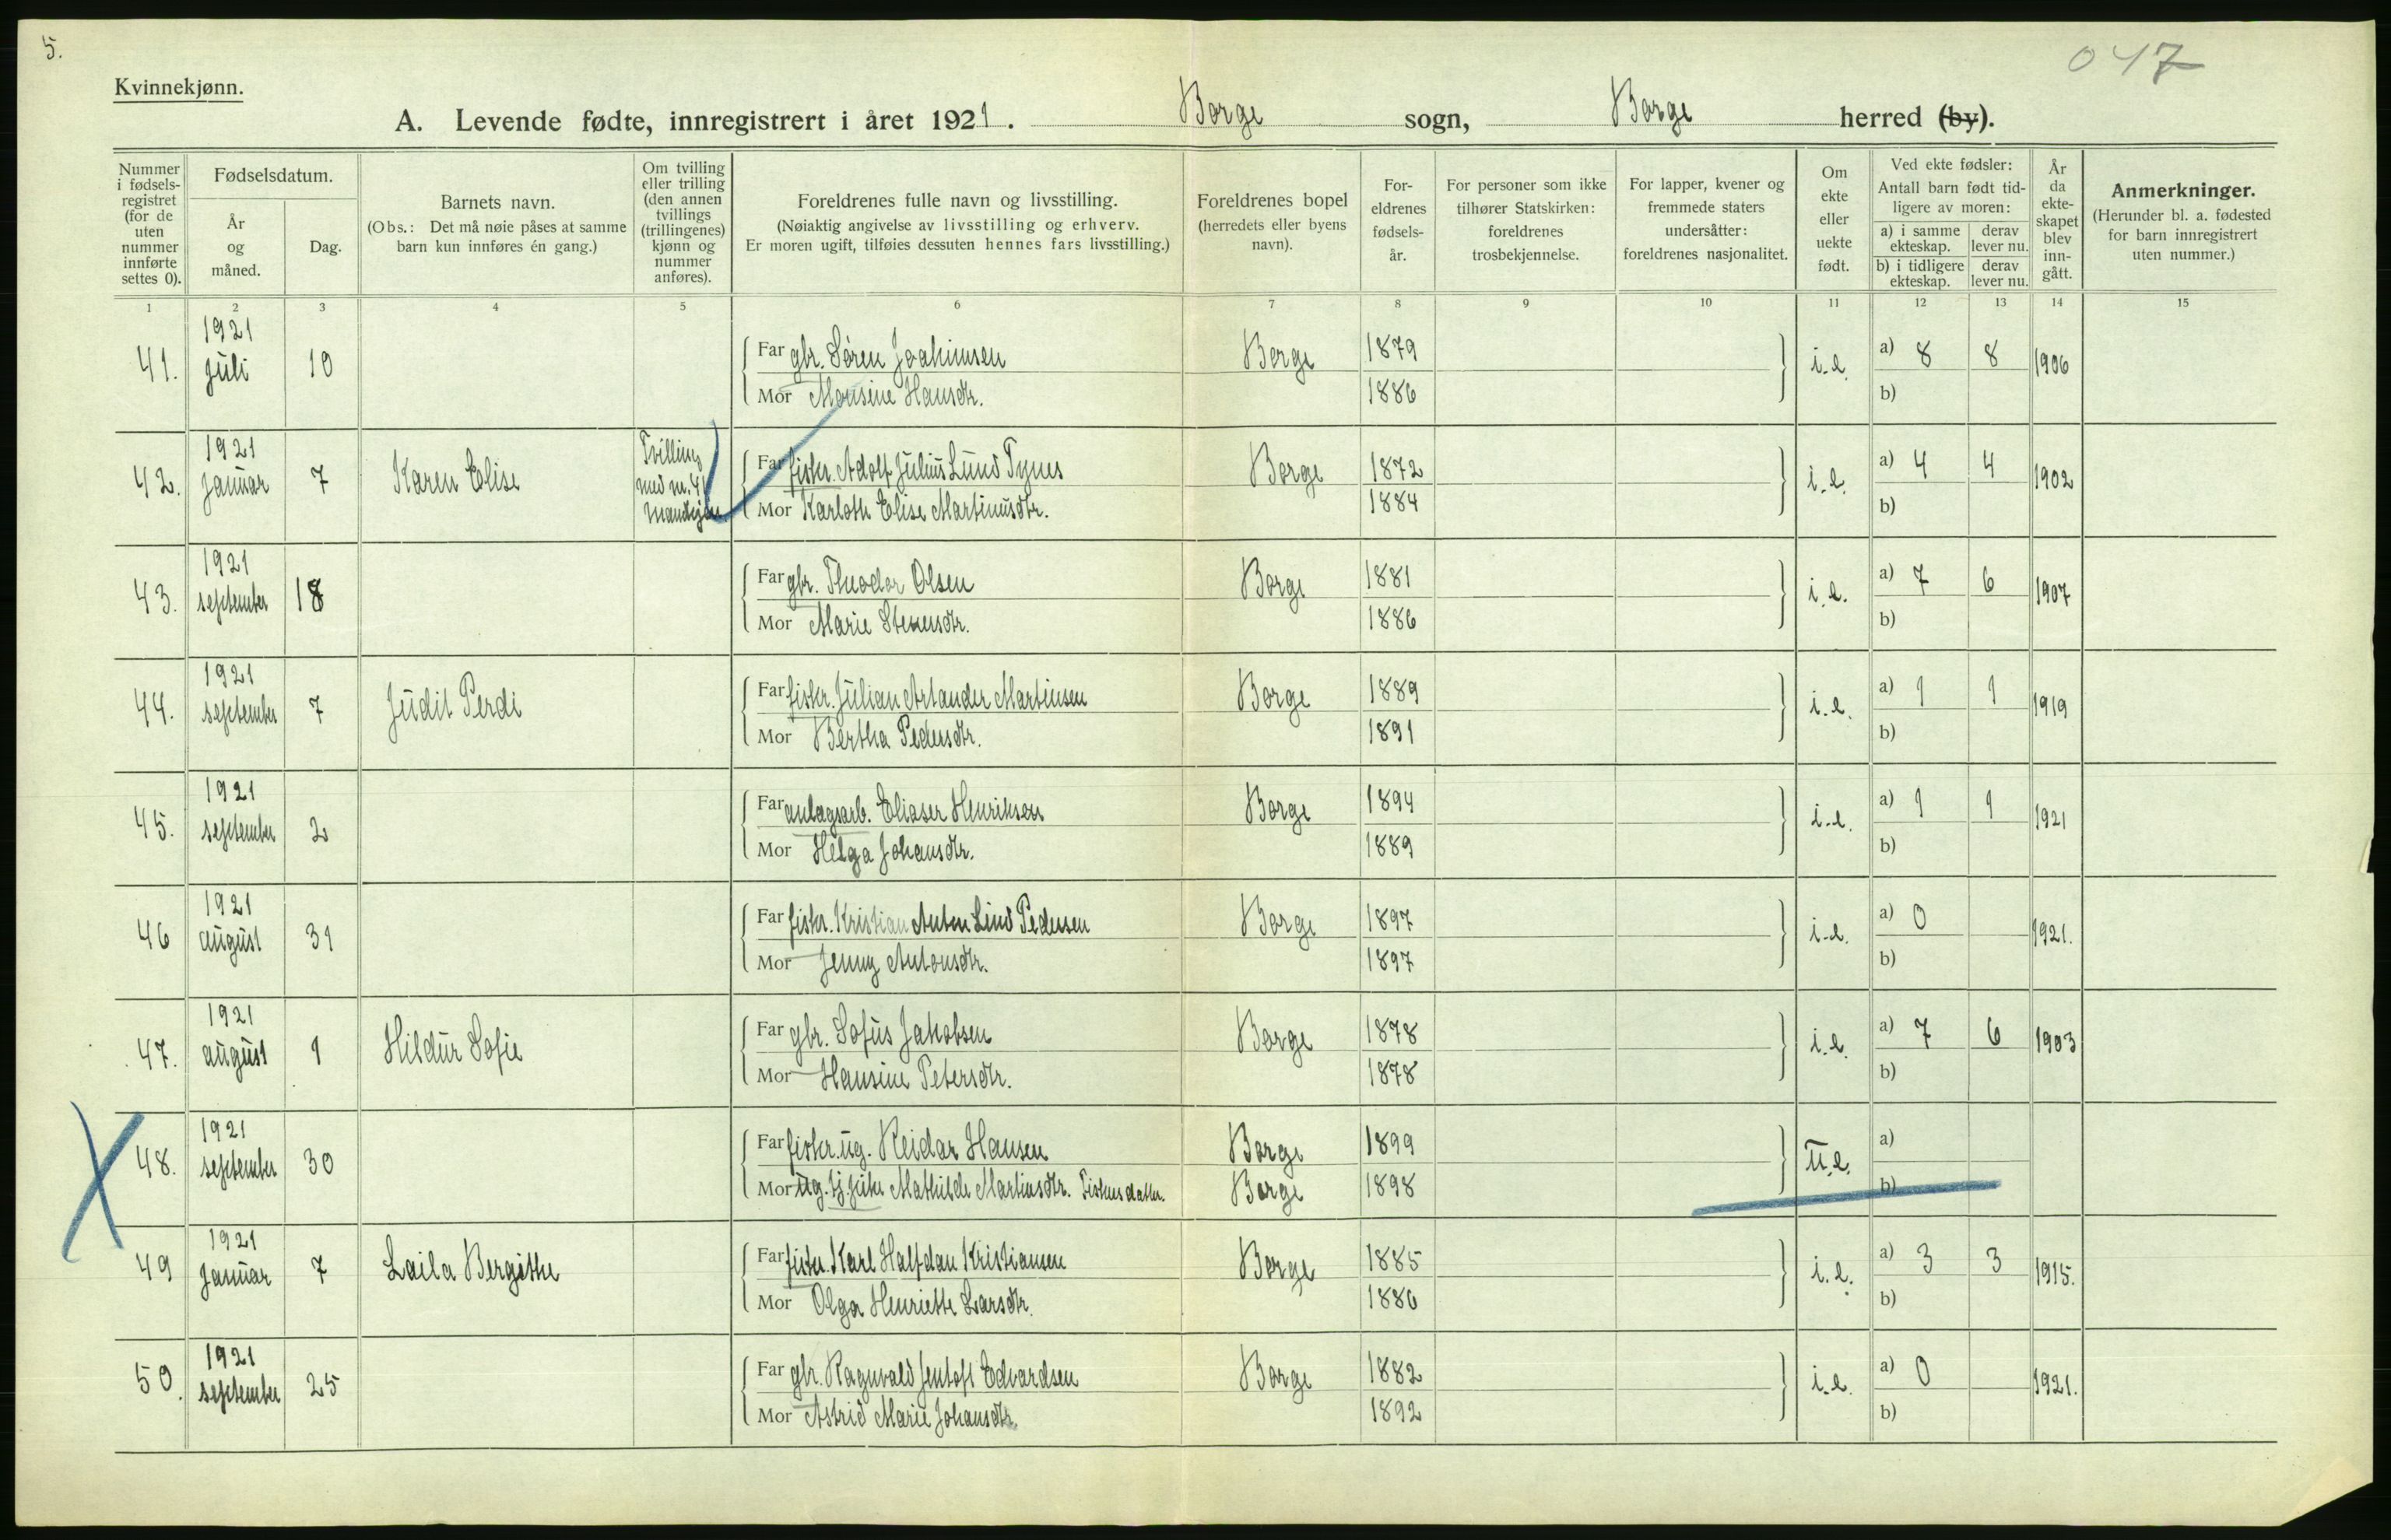 5.
047
Kvinnekjønn.
A. Levende fødte, innregistrert i året 1921. Borge sogn, Borge herred (by).
Nummer i fødsels-registret (for de uten nummer innførte settes 0).
Fødselsdatum.
År og måned.
Dag.
Barnets navn.
(Obs.: Det må nøie påses at samme barn kun innføres én gang.)
Om tvilling eller trilling (den annen tvillings (trillingenes) kjønn og nummer anføres).
Foreldrenes fulle navn og livsstilling.
(Nøiaktig angivelse av livsstilling og erhverv.
Er moren ugift, tilføies dessuten hennes fars livsstilling.)
Foreldrenes bopel
(herredets eller byens navn).
For-eldrenes fødsels-år.
For personer som ikke tilhører Statskirken: foreldrenes trosbekjennelse.
For lapper, kvener og fremmede staters undersåtter: foreldrenes nasjonalitet.
Om ekte eller uekte født.
Ved ekte fødsler:
Antall barn født tid-ligere av moren:
a) i samme ekteskap. derav lever nu.
b) i tidligere ekteskap. derav lever nu.
År da ekte-skapet blev inn-gått.
Anmerkninger.
(Herunder bl. a. fødested for barn innregistrert uten nummer.)
1 2 3 4 5 6 7 8 9 10 11 12 13 14 15
41. 1921 juli 10 Far gbr. Søren Joakimsen Borge 1879 i.e. a) 8 8 1906
Mor Monsine Hansdtr. 1886 b)
42. 1921 januar 7 Karen Elise Tvilling med nr. 41 Far fisker. Adolf Julius Lund Tynes Borge 1872 i.e. a) 4 4 1902
Mor Karloth Elise Martinusdtr. 1884 b)
43. 1921 september 18 Far gbr. Theodor Olsen Borge 1881 i.e. a) 7 6 1907
Mor Marie Stenersdtr. 1886 b)
44. 1921 september 7 Judit Perdi Far fisker. Julian Artander Martinsen Borge 1889 i.e. a) 1 1 1919
Mor Bertha Pedersdtr. 1891 b)
45. 1921 september 2 Far anlagsarb. Eliaser Henriksen Borge 1894 i.e. a) 1 1 1921
Mor Helga Johansdtr. 1889 b)
46 1921 august 31 Far fisker. Kristian Anton Lind Pedersen Borge 1897 i.e. a) 0 1921.
Mor Jenny Antonsdtr. 1897 b)
47. 1921 august 1 Hildur Sofie Far gbr. Sofus Jakobsen Borge 1878 i.e. a) 7 6 1903
Mor Hansine Petersdtr. 1878 b)
48. 1921 september 30 Far fisker. ug. Reidar Hansen Borge 1899 u.e. a)
Mor ug. tj.pike Mathilde Martinsdtr. Fiskersdatter. Borge 1898 b)
49 1921 januar 7 Laila Bergithe Far fisker. Karl Halfdan Kristiansen Borge 1885 i.e. a) 3 3 1915.
Mor Olga Henriette Larsdtr. 1886 b)
50. 1921 september 25 Far gbr. Ragnvald Jentoft Edvardsen Borge 1882 i.e. a) 0 1921.
Mor Astrid Marie Johansdtr. 1892 b)